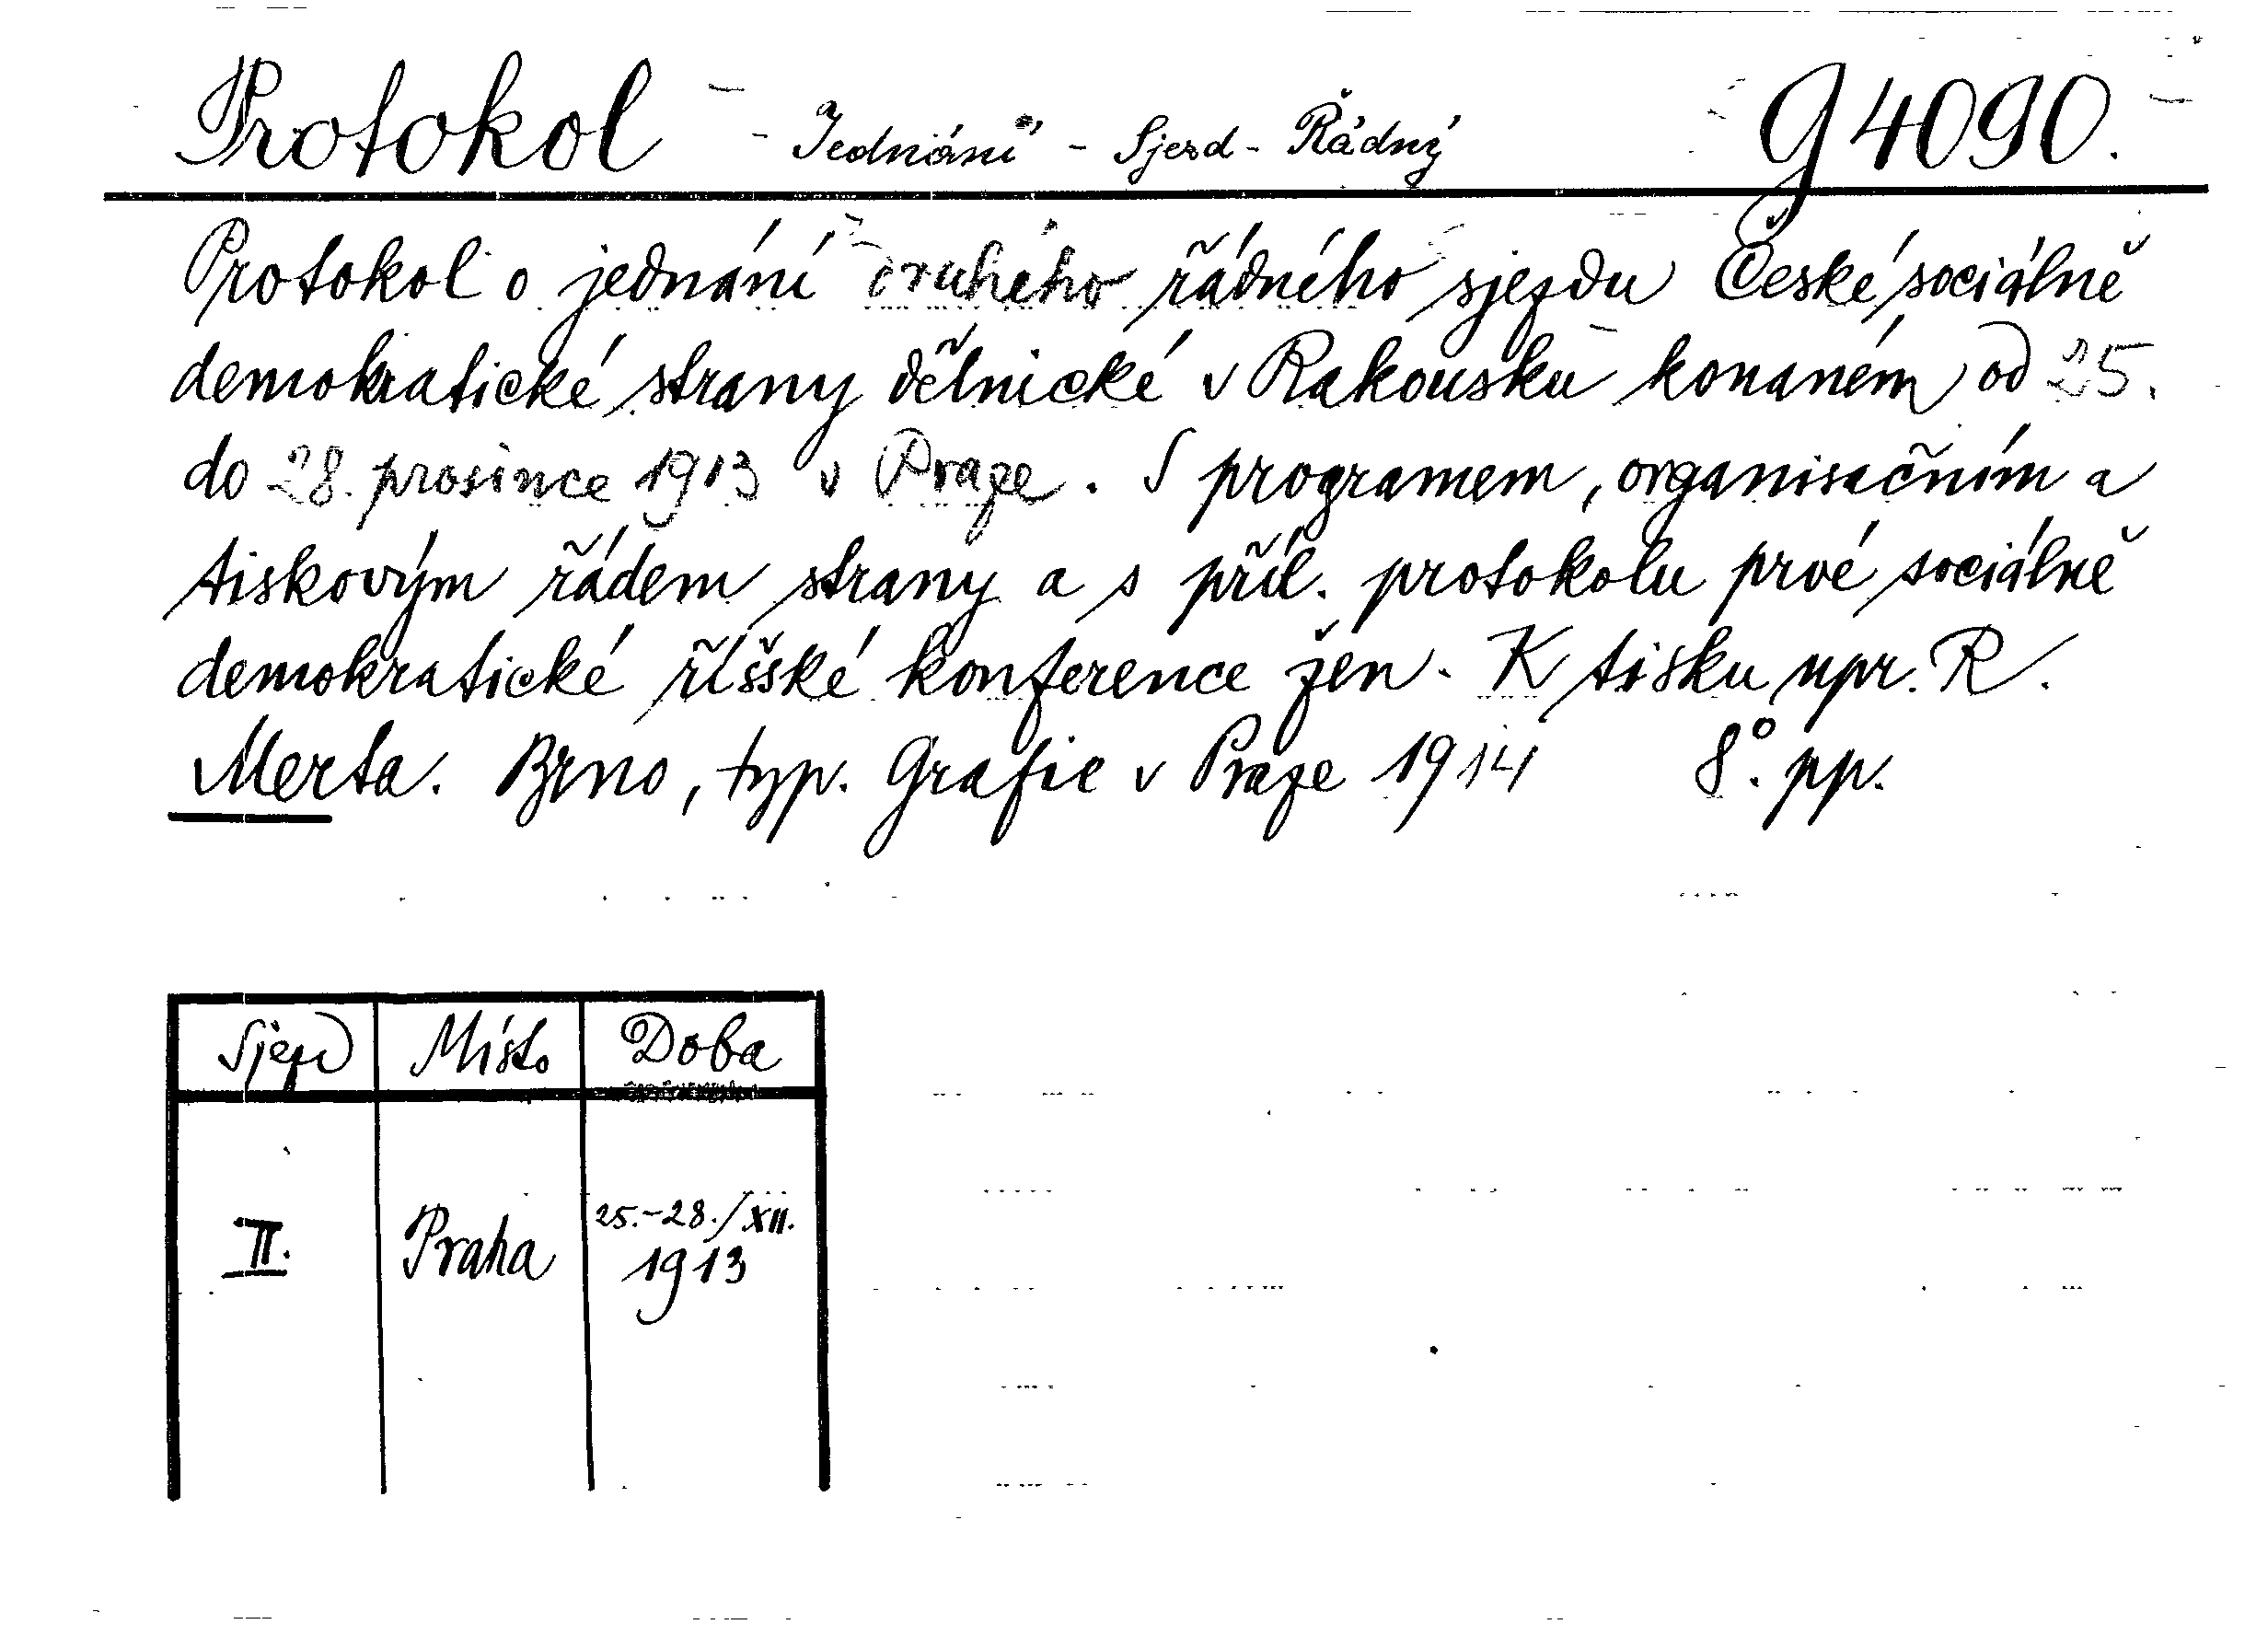 Protokol - Jednání - Sjezd - Řádný G 4090.
Protokol o jednání druhého řádného sjezdu České sociálně
demokratické strany dělnické v Rakousku konaném od 25.
do 28. prosince 1913 v Praze. S programem, organisačním a
tiskovým řádem strany a s příl. protokolu prvé sociálně
demokratické říšské konference žen. K tisku upr. R.
Merta. Brno, typ. Grafie v Praze 1914 8°. pp.
Sjezd Místo Doba
II. Praha 25.-28./XII.
1913